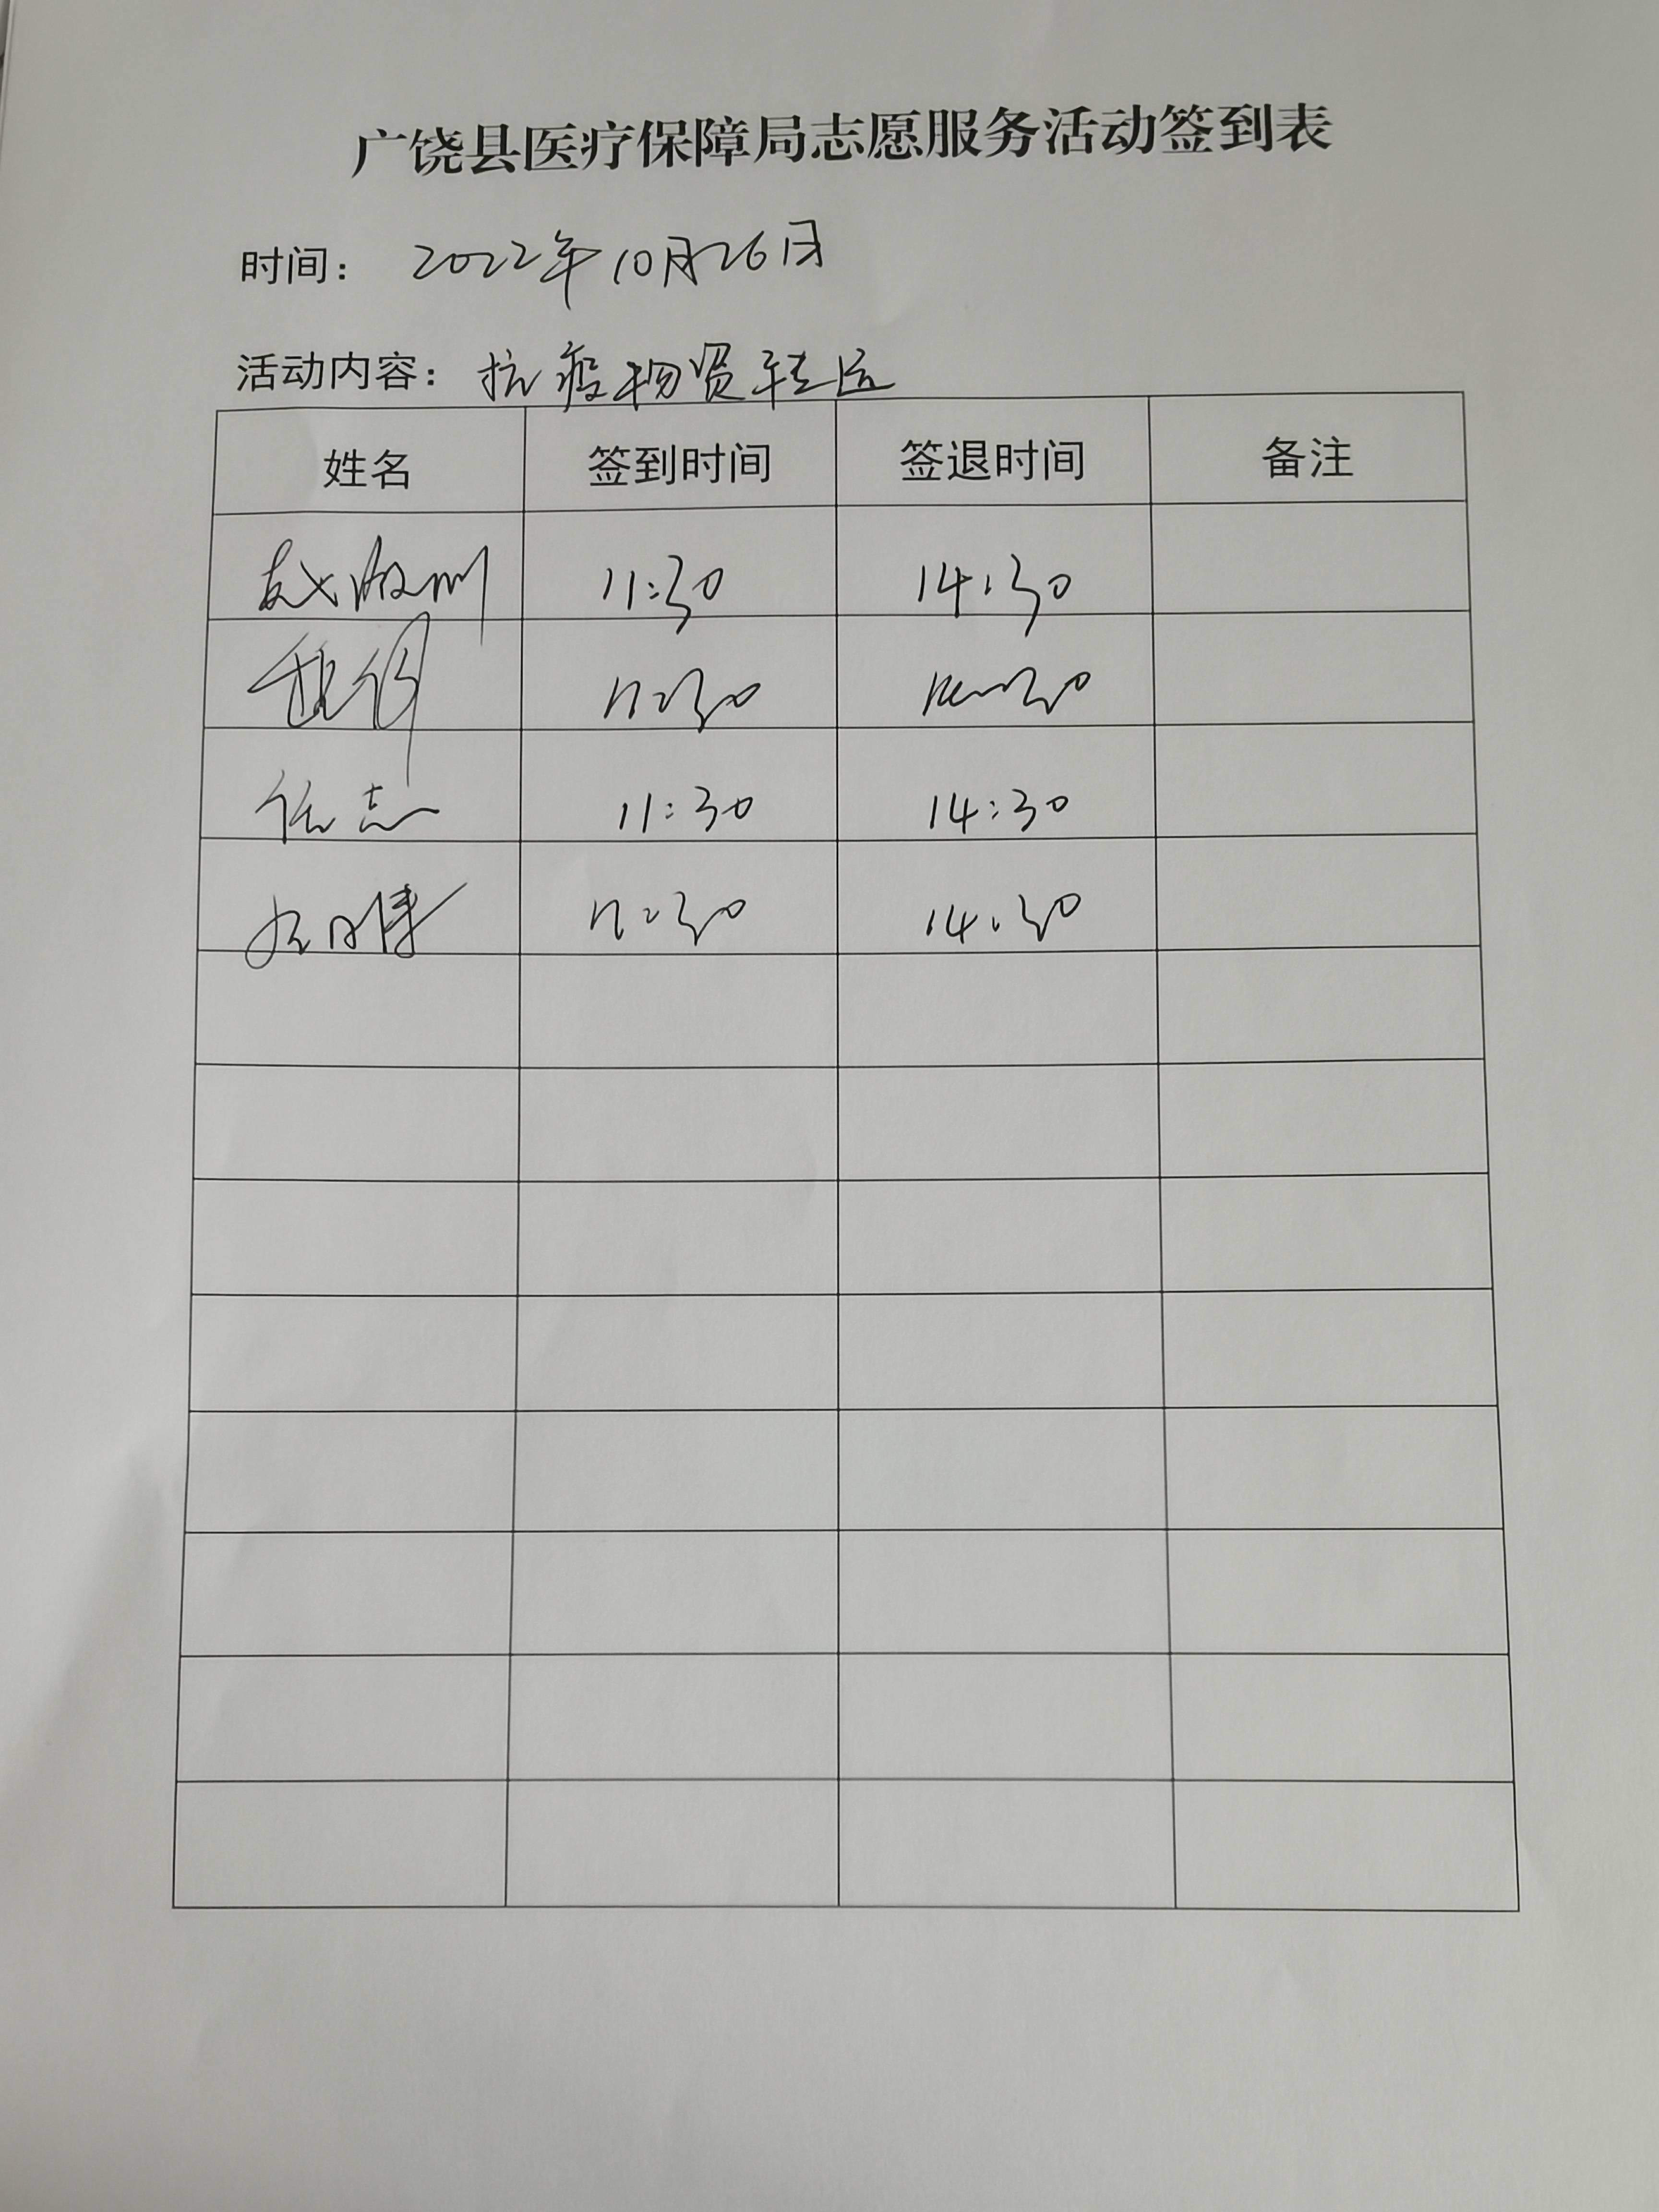 广饶县医疗保障局志愿服务活动签到表
时间： 2022年10月26日
活动内容： 抗疫物资转运
姓名 签到时间 签退时间 备注
11:30 14:30
11:30 14:30
任志 11:30 14:30
11:30 14:30